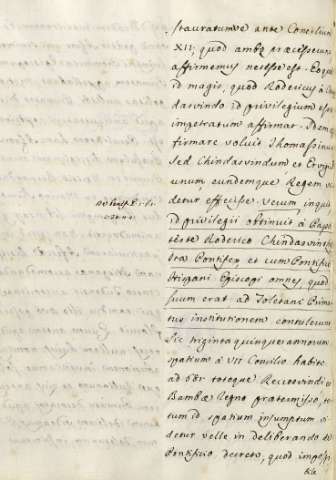 stauratumve ante Concilium
XII, quod ambo præcesserunt
affirmemus necesse est. Eoque
id magis, quod Rodericus à
darvindo id privilegium es
impetratum affirmat. Idem
firmare voluit Thomassinus
sed Chindarvindum, et Ervig
unum, eundemque Regem
detur effecisse. Verum, inqui
id privilegii obtinuit à
teste Roderico Chindarvin
Pontifex et cum Pontifici
Hispani Episcopi omnes, quod
suum erat ad Toletanæ Prima
tus institutionem contulerunt
Sic triginta quinque annorum
spatium à VII Concilio habito
ad totoque Reccesvindi
Bambæ Regno prætermisso,
tum id spatium insumptum
detur velle in deliberando
Pontificio decreto, quod